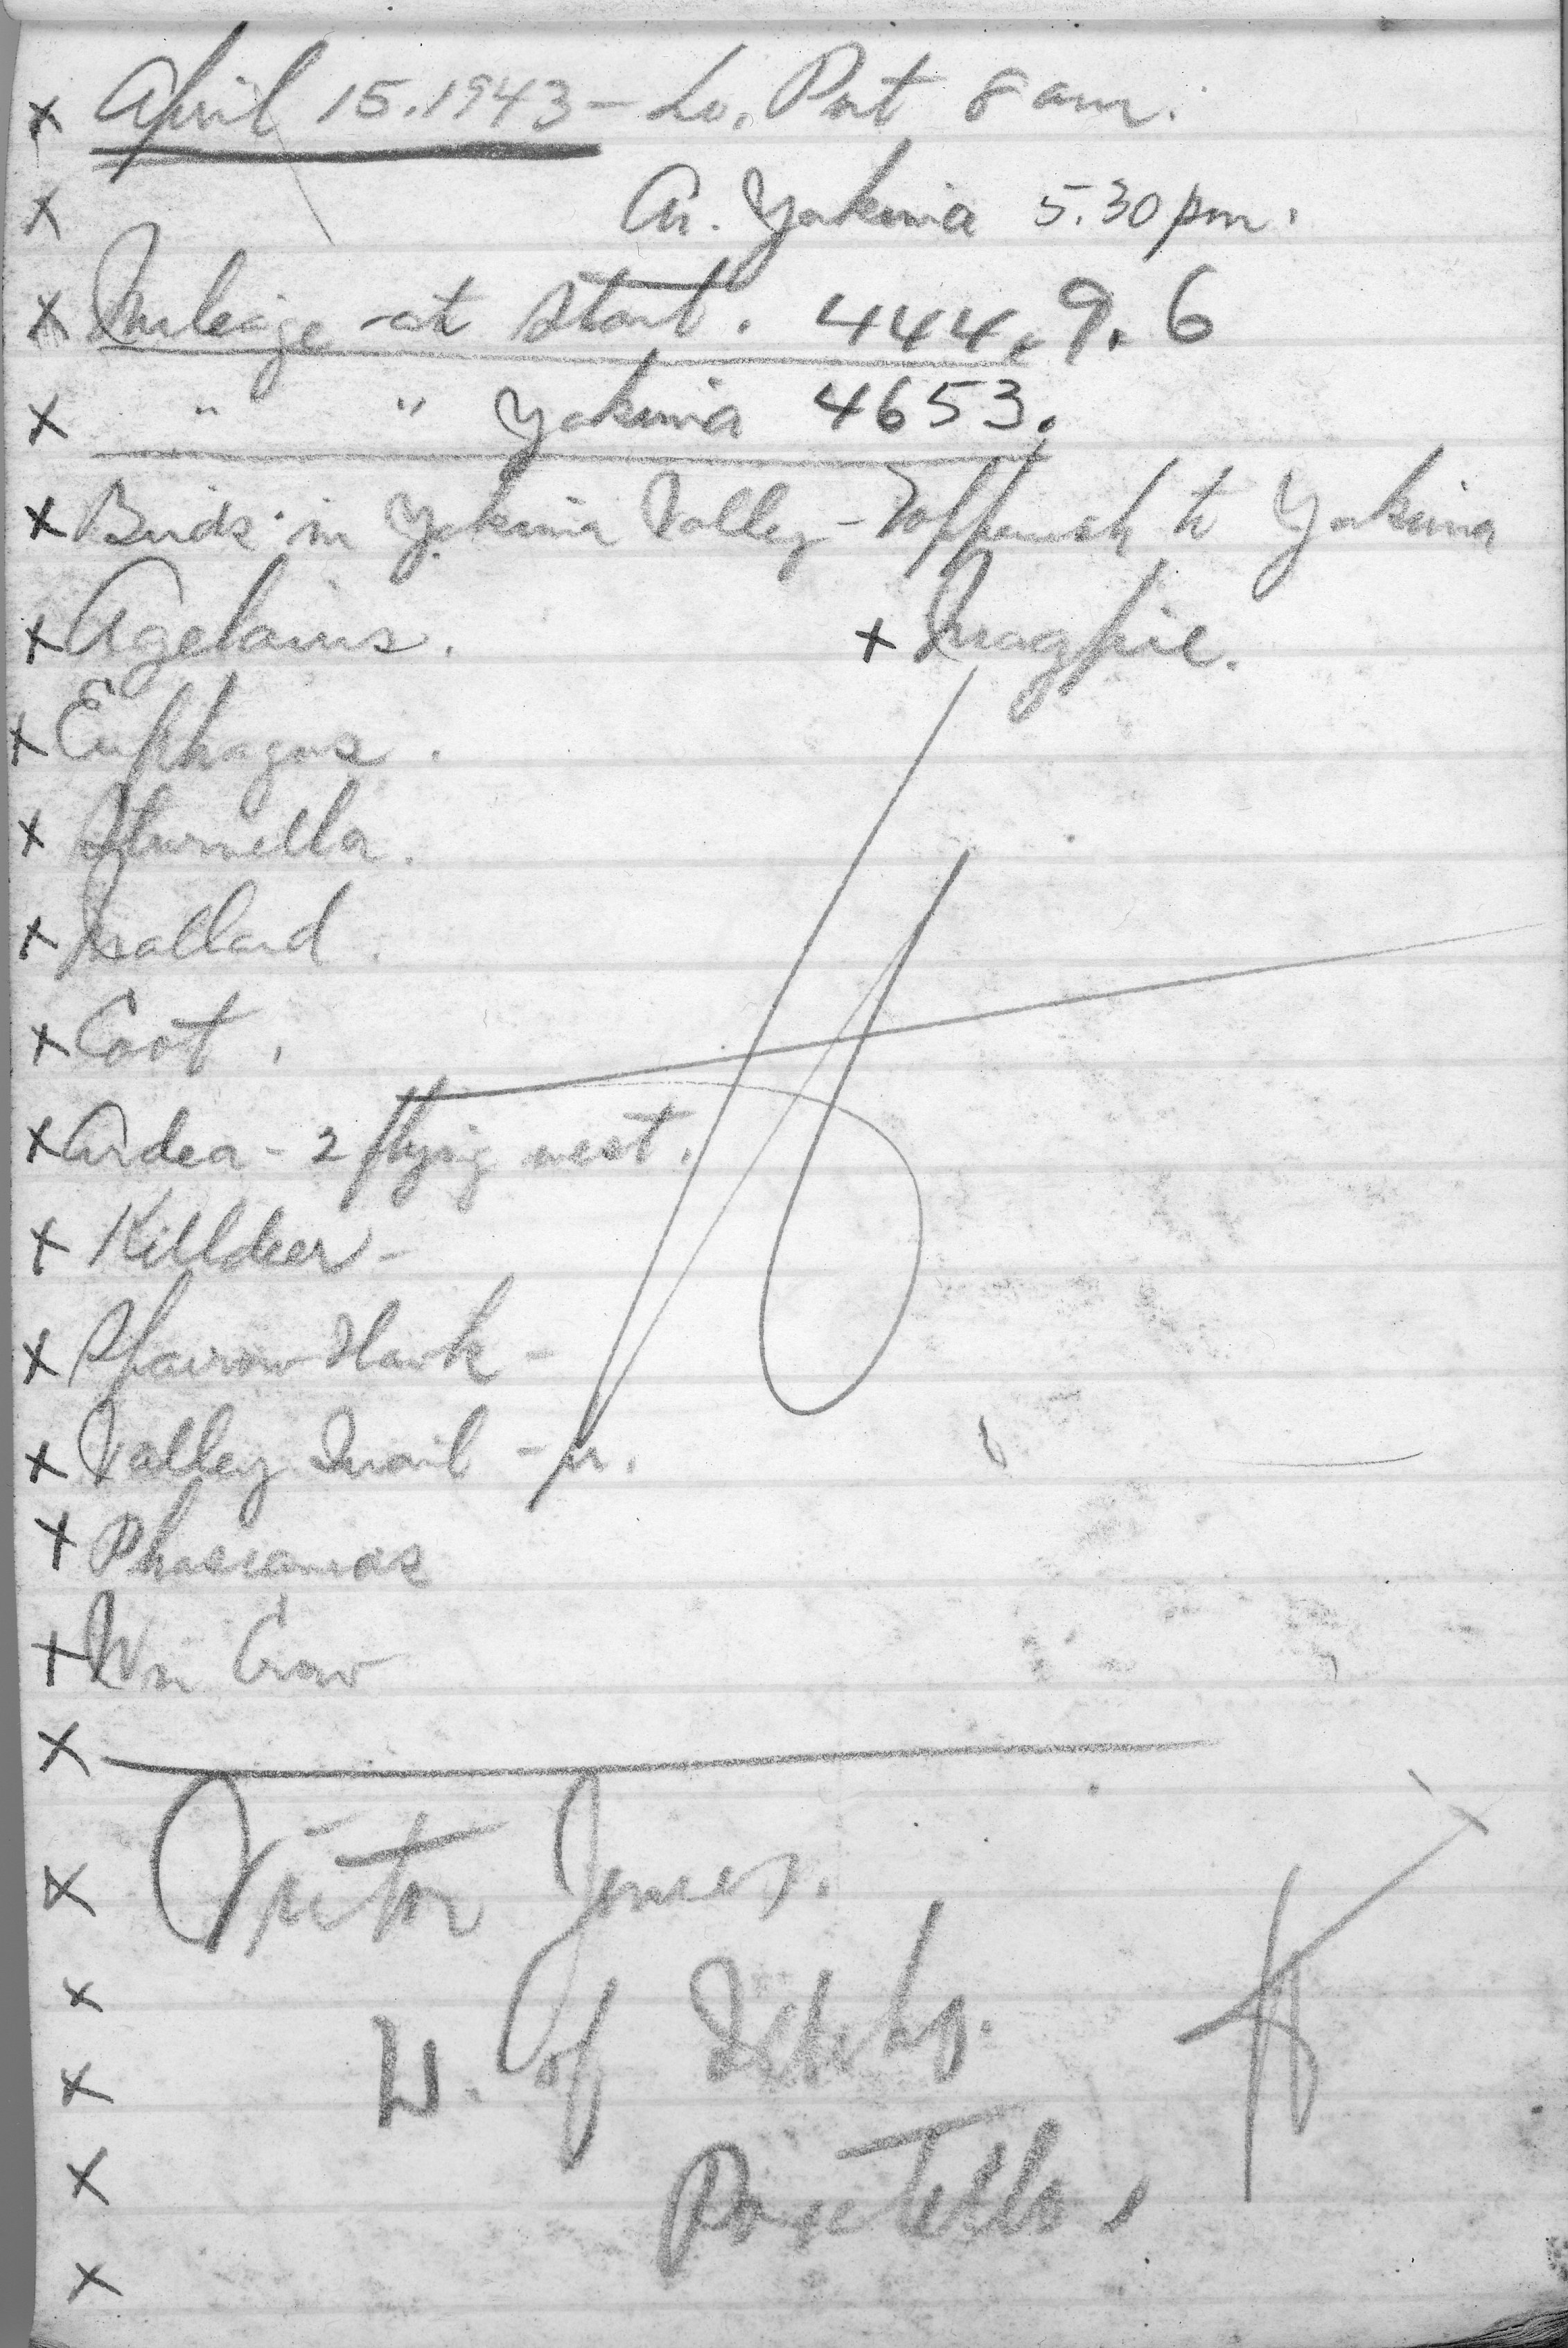 x April 15.1943 - Lv. Port 8 am.
x Ar. Yakima 5.30 pm.
x Mileage at start. 444.9.6
x " " Yakima 4653.
x Birds in Yakima Valley - Toppenish to Yakima
x Agelaius. x Magpie.
x Euphagus.
x Sturnella.
x Mallard.
x Coot.
x Ardea - 2 flying west.
x Killdeer -
x Sparrow Hawk -
x Valley Quail - pr.
x Phasianus
x Wn Crow
x
x Victor Jones.
x U. of Idaho.
x
x Pocatello.
x